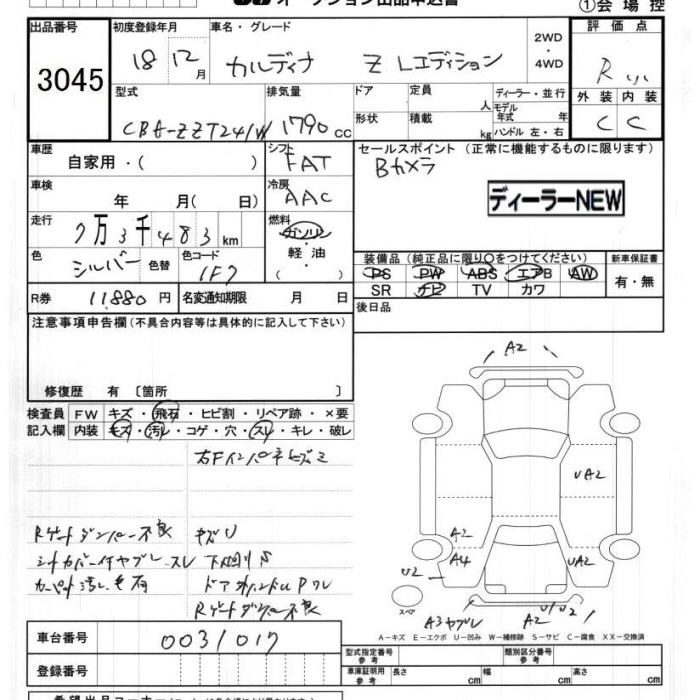 オークション出品申込書
①会場控
出品番号 初度登録年月 車名・グレード 評価点
3045 18 12月 カルディナ Z Lエディション 2WD・4WD R
型式 排気量 ドア 定員 人 ディーラー・並行 外装 内装
CBA-ZZT241W 1790cc 形状 積載 kg モデル年式 年 ハンドル 左・右 C C
車歴 自家用・( ) シフト FAT セールスポイント (正常に機能するものに限ります)
Bカメラ
車検 年 月( 日) 冷房 AAC ディーラーNEW
走行 7万3千483km 燃料 ガソリン・軽油
色 シルバー 色替 色コード 1F7 ( )
装備品 (純正品に限り○をつけてください) 新車保証書
PS PW ABS エアB AW 有・無
SR ナビ TV カワ
R券 11,880円 名変通知期限 月 日 後日品
注意事項申告欄(不具合内容等は具体的に記入して下さい)
修復歴 有 〔箇所 〕
検査員 FW キズ・飛石・ヒビ割・リペア跡・×要
記入欄 内装 キズ・汚レ・コゲ・穴・スレ・キレ・破レ
右Fインパネヒズミ
Rゲートダンパー不良 キズU
シートカバー付ヤブレ、スレ 下回りS
カーペット汚レ
Rゲートダンパー不良
A2
UA2
A2
A4 UA2
U2
スペア A3ヤブレ A2 U1 U2
A-キズ E-エクボ U-凹み W-補修跡 S-サビ C-腐食 XX-交換済
車台番号 0031017
登録番号
型式指定番号 参考 類別区分番号 参考
車庫証明用 参考 長さ cm 幅 cm 高さ cm
希望出品コーナー